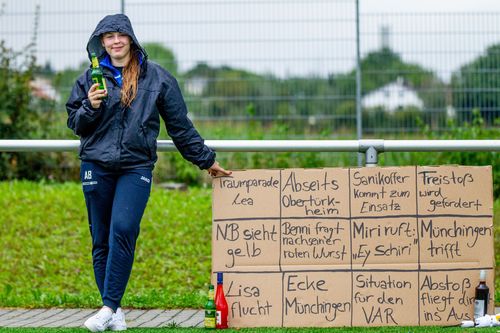 AB
JAKO
Traumparade
Lea
Abseits
Obertürk-
heim
Sanikoffer
kommt zum
Einsatz
Freistoß
wird
gefordert
NB sieht
gelb
Benni fragt
nach seiner
roten Wurst
Miri ruft:
"Ey Schiri"
Münchingen
trifft
Lisa
flucht
Ecke
Münchingen
Situation
für den
VAR
Abstoß
fliegt di-
rekt ins Aus